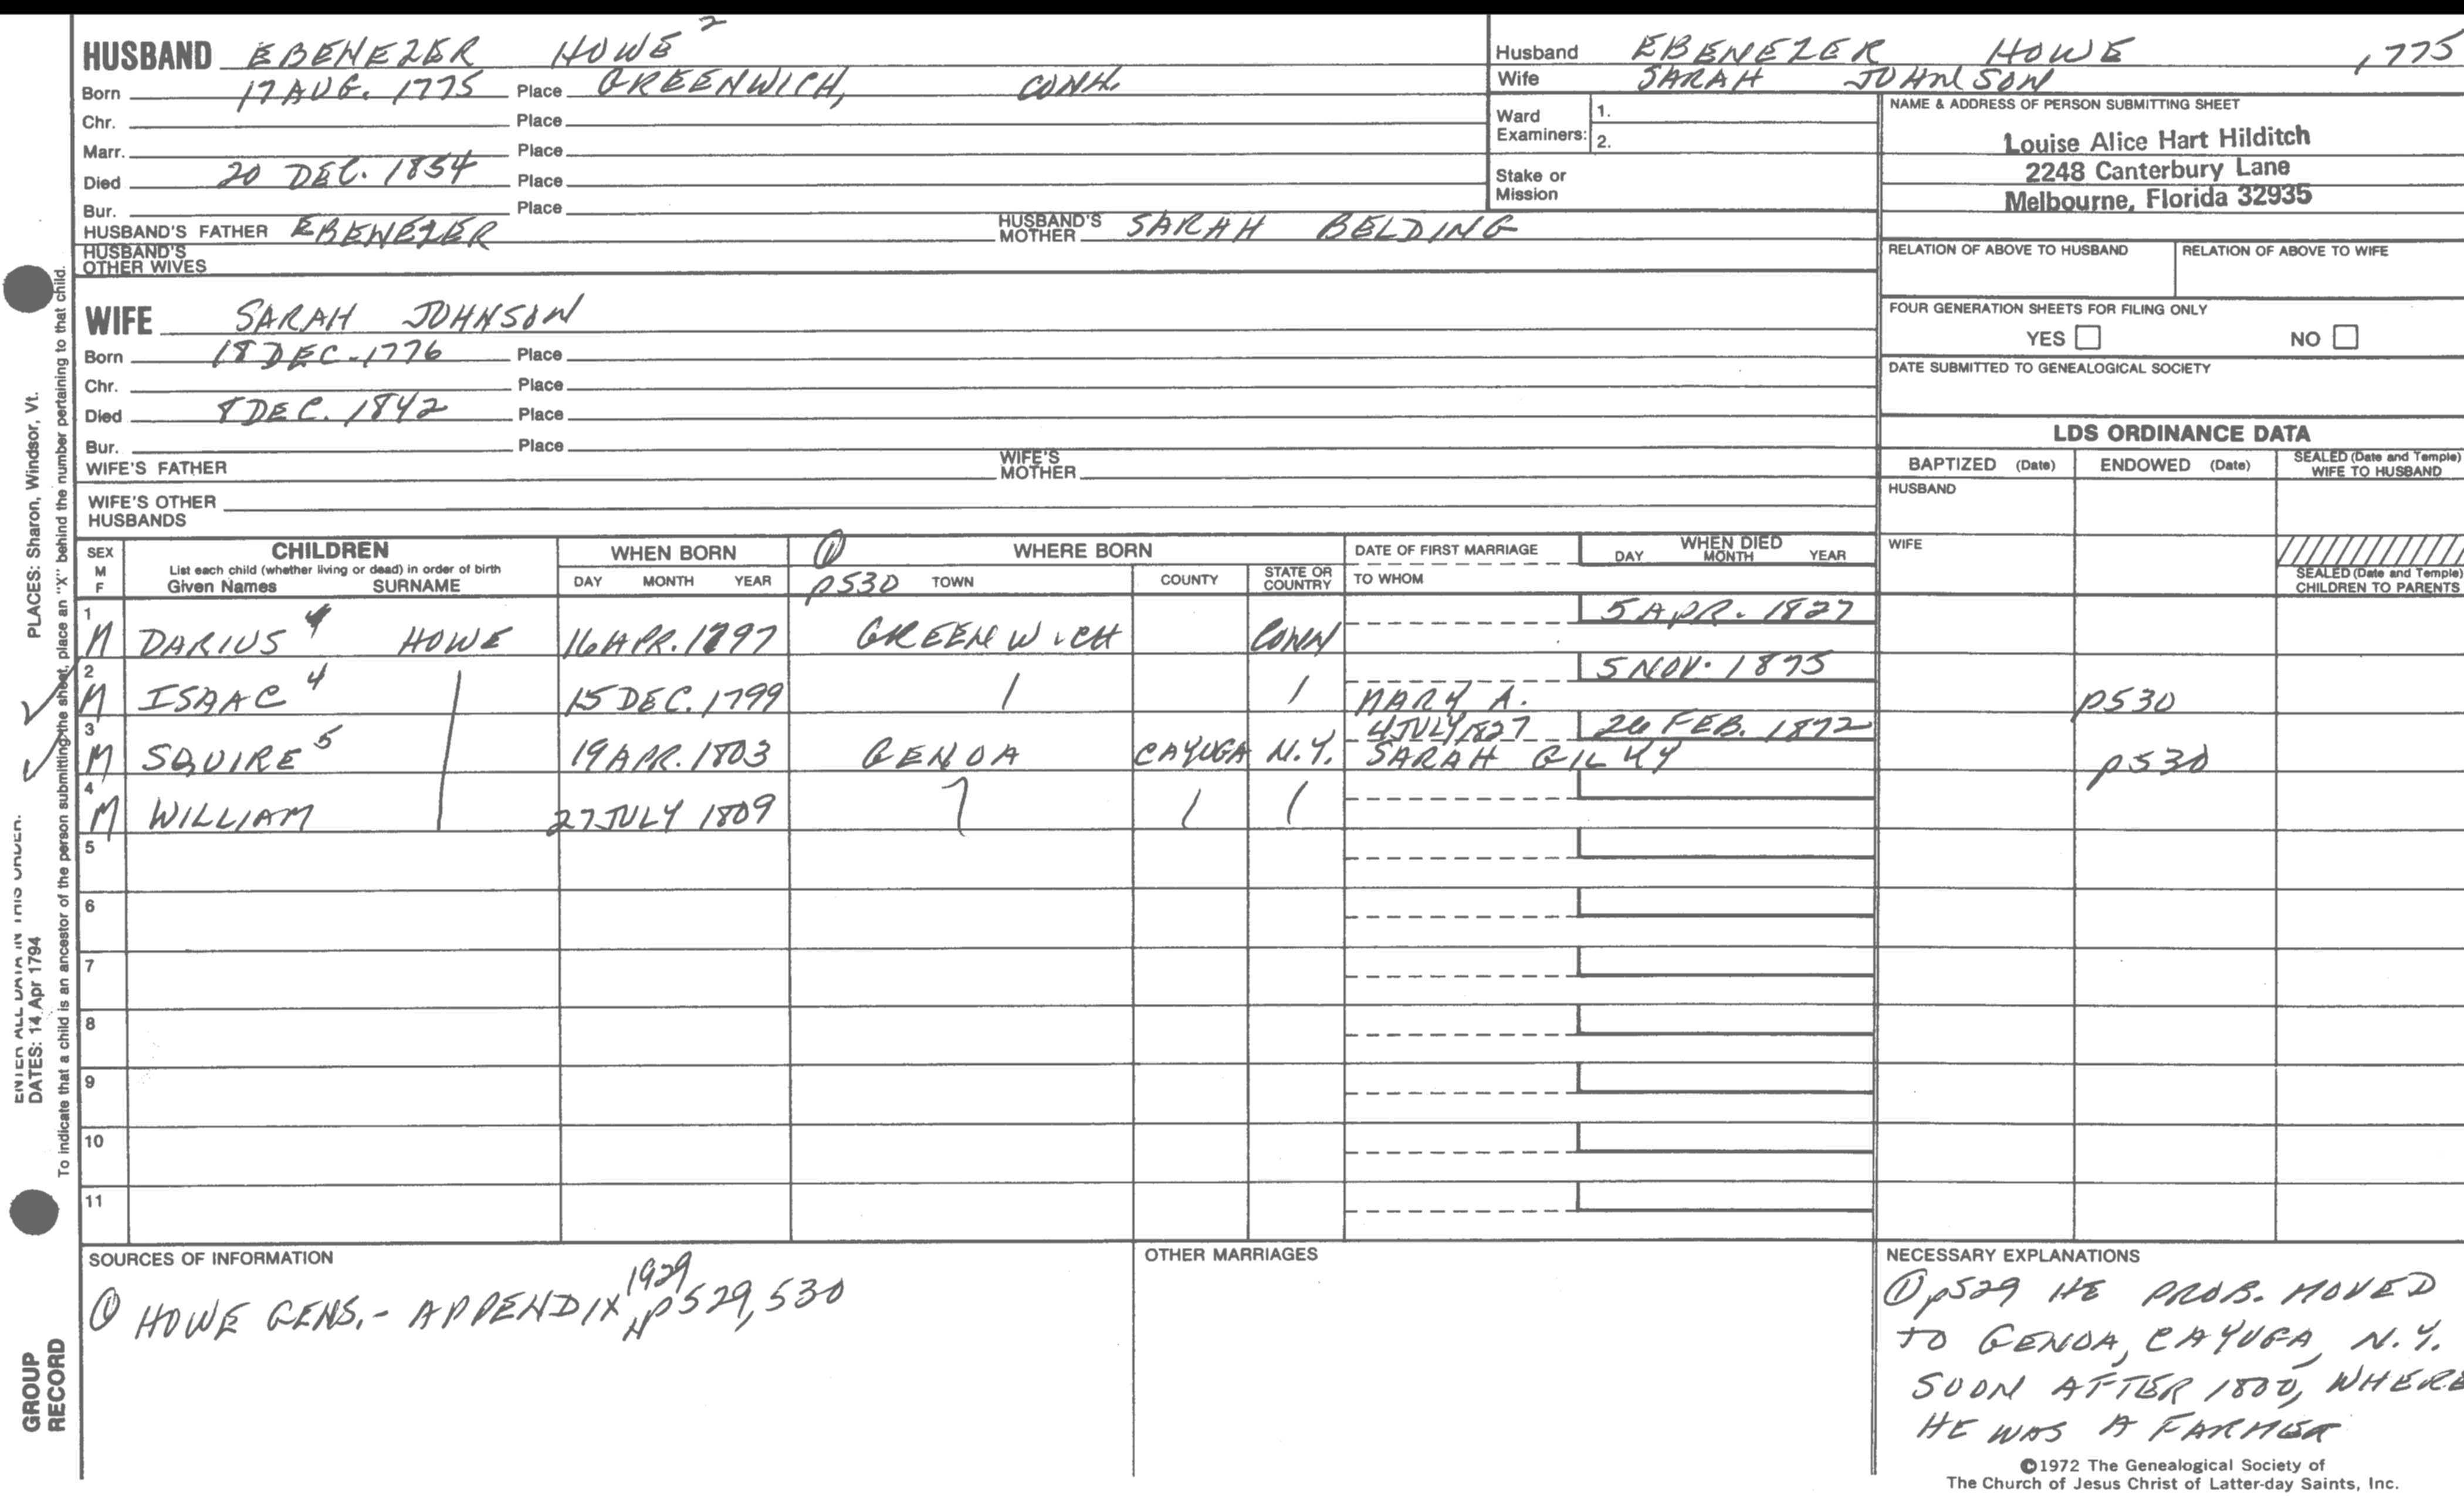 HUSBAND EBENEZER HOWE 2
Born 17 AUG. 1775 Place GREENWICH, CONN.
Chr. Place
Marr. Place
Died 20 DEC. 1854 Place
Bur. Place
HUSBAND'S FATHER EBENEZER HUSBAND'S MOTHER SARAH BELDING
HUSBAND'S OTHER WIVES
WIFE SARAH JOHNSON
Born 18 DEC. 1776 Place
Chr. Place
Died 8 DEC. 1842 Place
Bur. Place
WIFE'S FATHER WIFE'S MOTHER
WIFE'S OTHER HUSBANDS
Husband EBENEZER HOWE 1775
Wife SARAH JOHNSON
Ward Examiners: 1.
2.
Stake or Mission
NAME & ADDRESS OF PERSON SUBMITTING SHEET
Louise Alice Hart Hilditch
2248 Canterbury Lane
Melbourne, Florida 32935
RELATION OF ABOVE TO HUSBAND RELATION OF ABOVE TO WIFE
FOUR GENERATION SHEETS FOR FILING ONLY
YES NO
DATE SUBMITTED TO GENEALOGICAL SOCIETY
LDS ORDINANCE DATA
BAPTIZED (Date) ENDOWED (Date) SEALED (Date and Temple) WIFE TO HUSBAND
HUSBAND
WIFE
SEALED (Date and Temple) CHILDREN TO PARENTS
SEX M F
CHILDREN
List each child (whether living or dead) in order of birth
Given Names SURNAME
WHEN BORN
DAY MONTH YEAR
① WHERE BORN
p530 TOWN COUNTY STATE OR COUNTRY
DATE OF FIRST MARRIAGE
TO WHOM
WHEN DIED
DAY MONTH YEAR
1 M DARIUS 4 HOWE 16 APR. 1797 GREENWICH CONN 5 APR. 1827
2 M ISAAC 4 15 DEC. 1799 MARY A. 5 NOV. 1875 p530
3 M SQUIRE 5 19 APR. 1803 GENOA CAYUGA N.Y. 4 JULY 1827 SARAH GILKY 26 FEB. 1872 p530
4 M WILLIAM 27 JULY 1809
5
6
7
8
9
10
11
SOURCES OF INFORMATION
① HOWE GENS. - APPENDIX 1929 p529, 530
OTHER MARRIAGES
NECESSARY EXPLANATIONS
① p529 HE PROB. MOVED
TO GENOA, CAYUGA, N.Y.
SOON AFTER 1800, WHERE
HE WAS A FARMER
©1972 The Genealogical Society of
The Church of Jesus Christ of Latter-day Saints, Inc.
ENTER ALL DATA IN THIS ORDER:
DATES: 14 Apr 1794 PLACES: Sharon, Windsor, Vt.
To indicate that a child is an ancestor of the person submitting the sheet, place an "X" behind the number pertaining to that child.
GROUP
RECORD